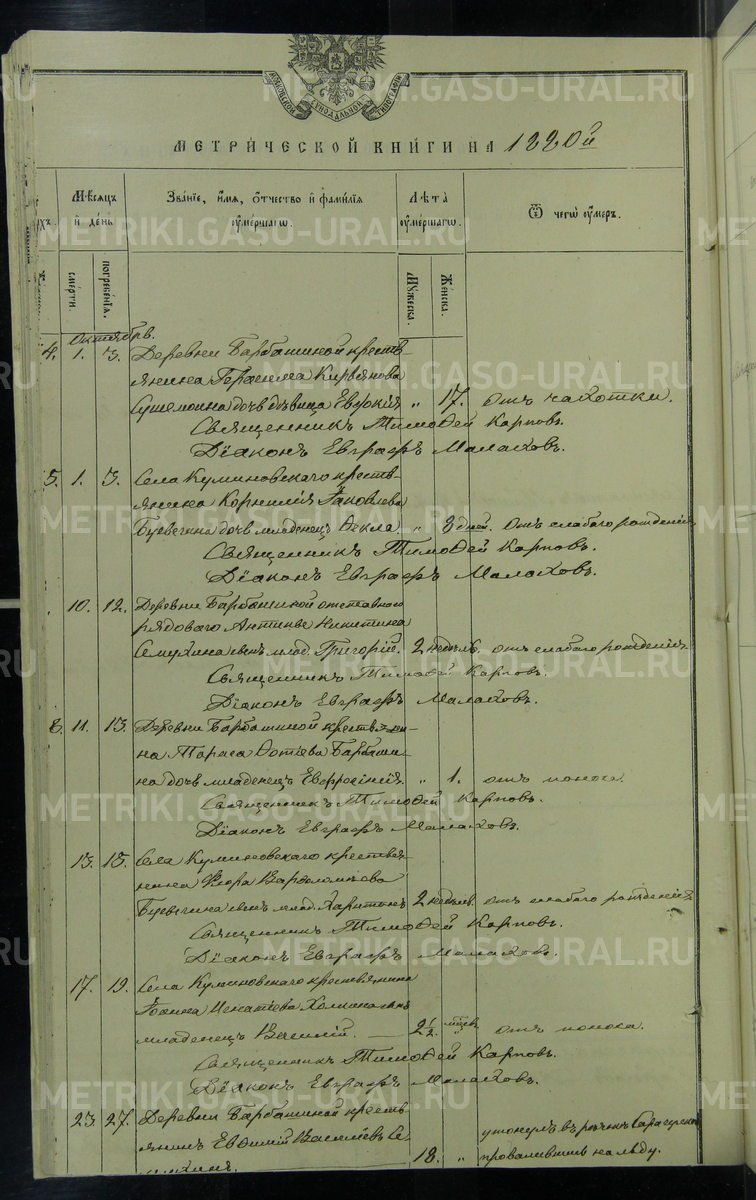 METRIKI.GASO-URAL.RU
МОСКОВСКОЙ СѴНОДАЛЬНОЙ ТИПОГРАФІИ
МЕТРИ́ЧЕСКОЙ КНИ́ГИ НА 1880й
Мѣ́сяцъ и҆ де́нь
Зва́нїе, и҆́мя, ѻ҆́тчество и҆ фами́лїѧ ᲂу҆ме́ршагѡ.
Лѣ́та ᲂу҆ме́ршагѡ.
Ѿ чегѡ̀ ᲂу҆́меръ.
сме́рти.
погребе́нїѧ.
Мꙋ́жеска.
Же́нска.
Октябрь.
4. 1. 3. Деревни Барбашиной кресть
янина Герасима Кирьянова
дочь дѣвица „ 17. отъ чахотки.
Священникъ Тимоѳей Карповъ.
Діаконъ Евграфъ Малаховъ.
5. 1. 3. Села Куминовскаго кресть
янина Корнилія Іаковлева
Бугвечина дочь младенецъ Ѳекла „ 3 дней. отъ слабаго рожденія
Священникъ Тимоѳей Карповъ.
Діаконъ Евграфъ Малаховъ.
10. 12. Деревни Барбашиной отставнаго
рядоваго Антипы Никитина
Семухина сынъ млад. Григорій. 2 недѣль. отъ слабаго рожденія
Священникъ Тимоѳей Карповъ.
Діаконъ Евграфъ Малаховъ.
11. 13. Деревни Барбашиной крестьяни-
на Тараса Ѳотіева Барбаши
на дочь младенецъ Евфросинія „ 1. отъ поноса
Священникъ Тимоѳей Карповъ.
Діаконъ Евграфъ Малаховъ.
13. 15. Села Куминовскаго крестья
нина Флора Варѳоломѣева
Бугвечина сынъ млад. Харитонъ 2 недѣль. отъ слабаго рожденія
Священникъ Тимоѳей Карповъ.
Діаконъ Евграфъ Малаховъ.
17. 19. Села Куминовскаго крестьянина
Іоанна Игнатіева сынъ
младенецъ Василій. 2 ½ мѣсяц. отъ поноса.
Священникъ Тимоѳей Карповъ.
Діаконъ Евграфъ Малаховъ.
23. 27. Деревни Барбашиной кресть
янинъ Евѳимій Васильевъ Се
мухинъ. 18. „ утонулъ въ рѣчкѣ
провалившись на льду.